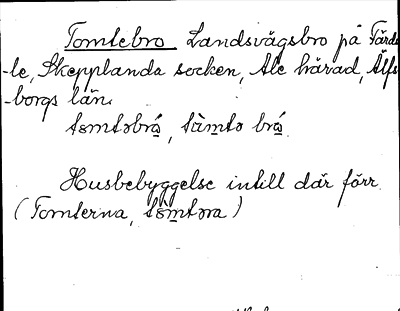 Tomtebro Landsvägsbro på Färde
-le, Skepplanda socken, Ale härad, Älfs
-borgs län.
tomtəbrå, tåmtə brå
Husbebyggelse intill där förr
(Tomterna, tömtəra)